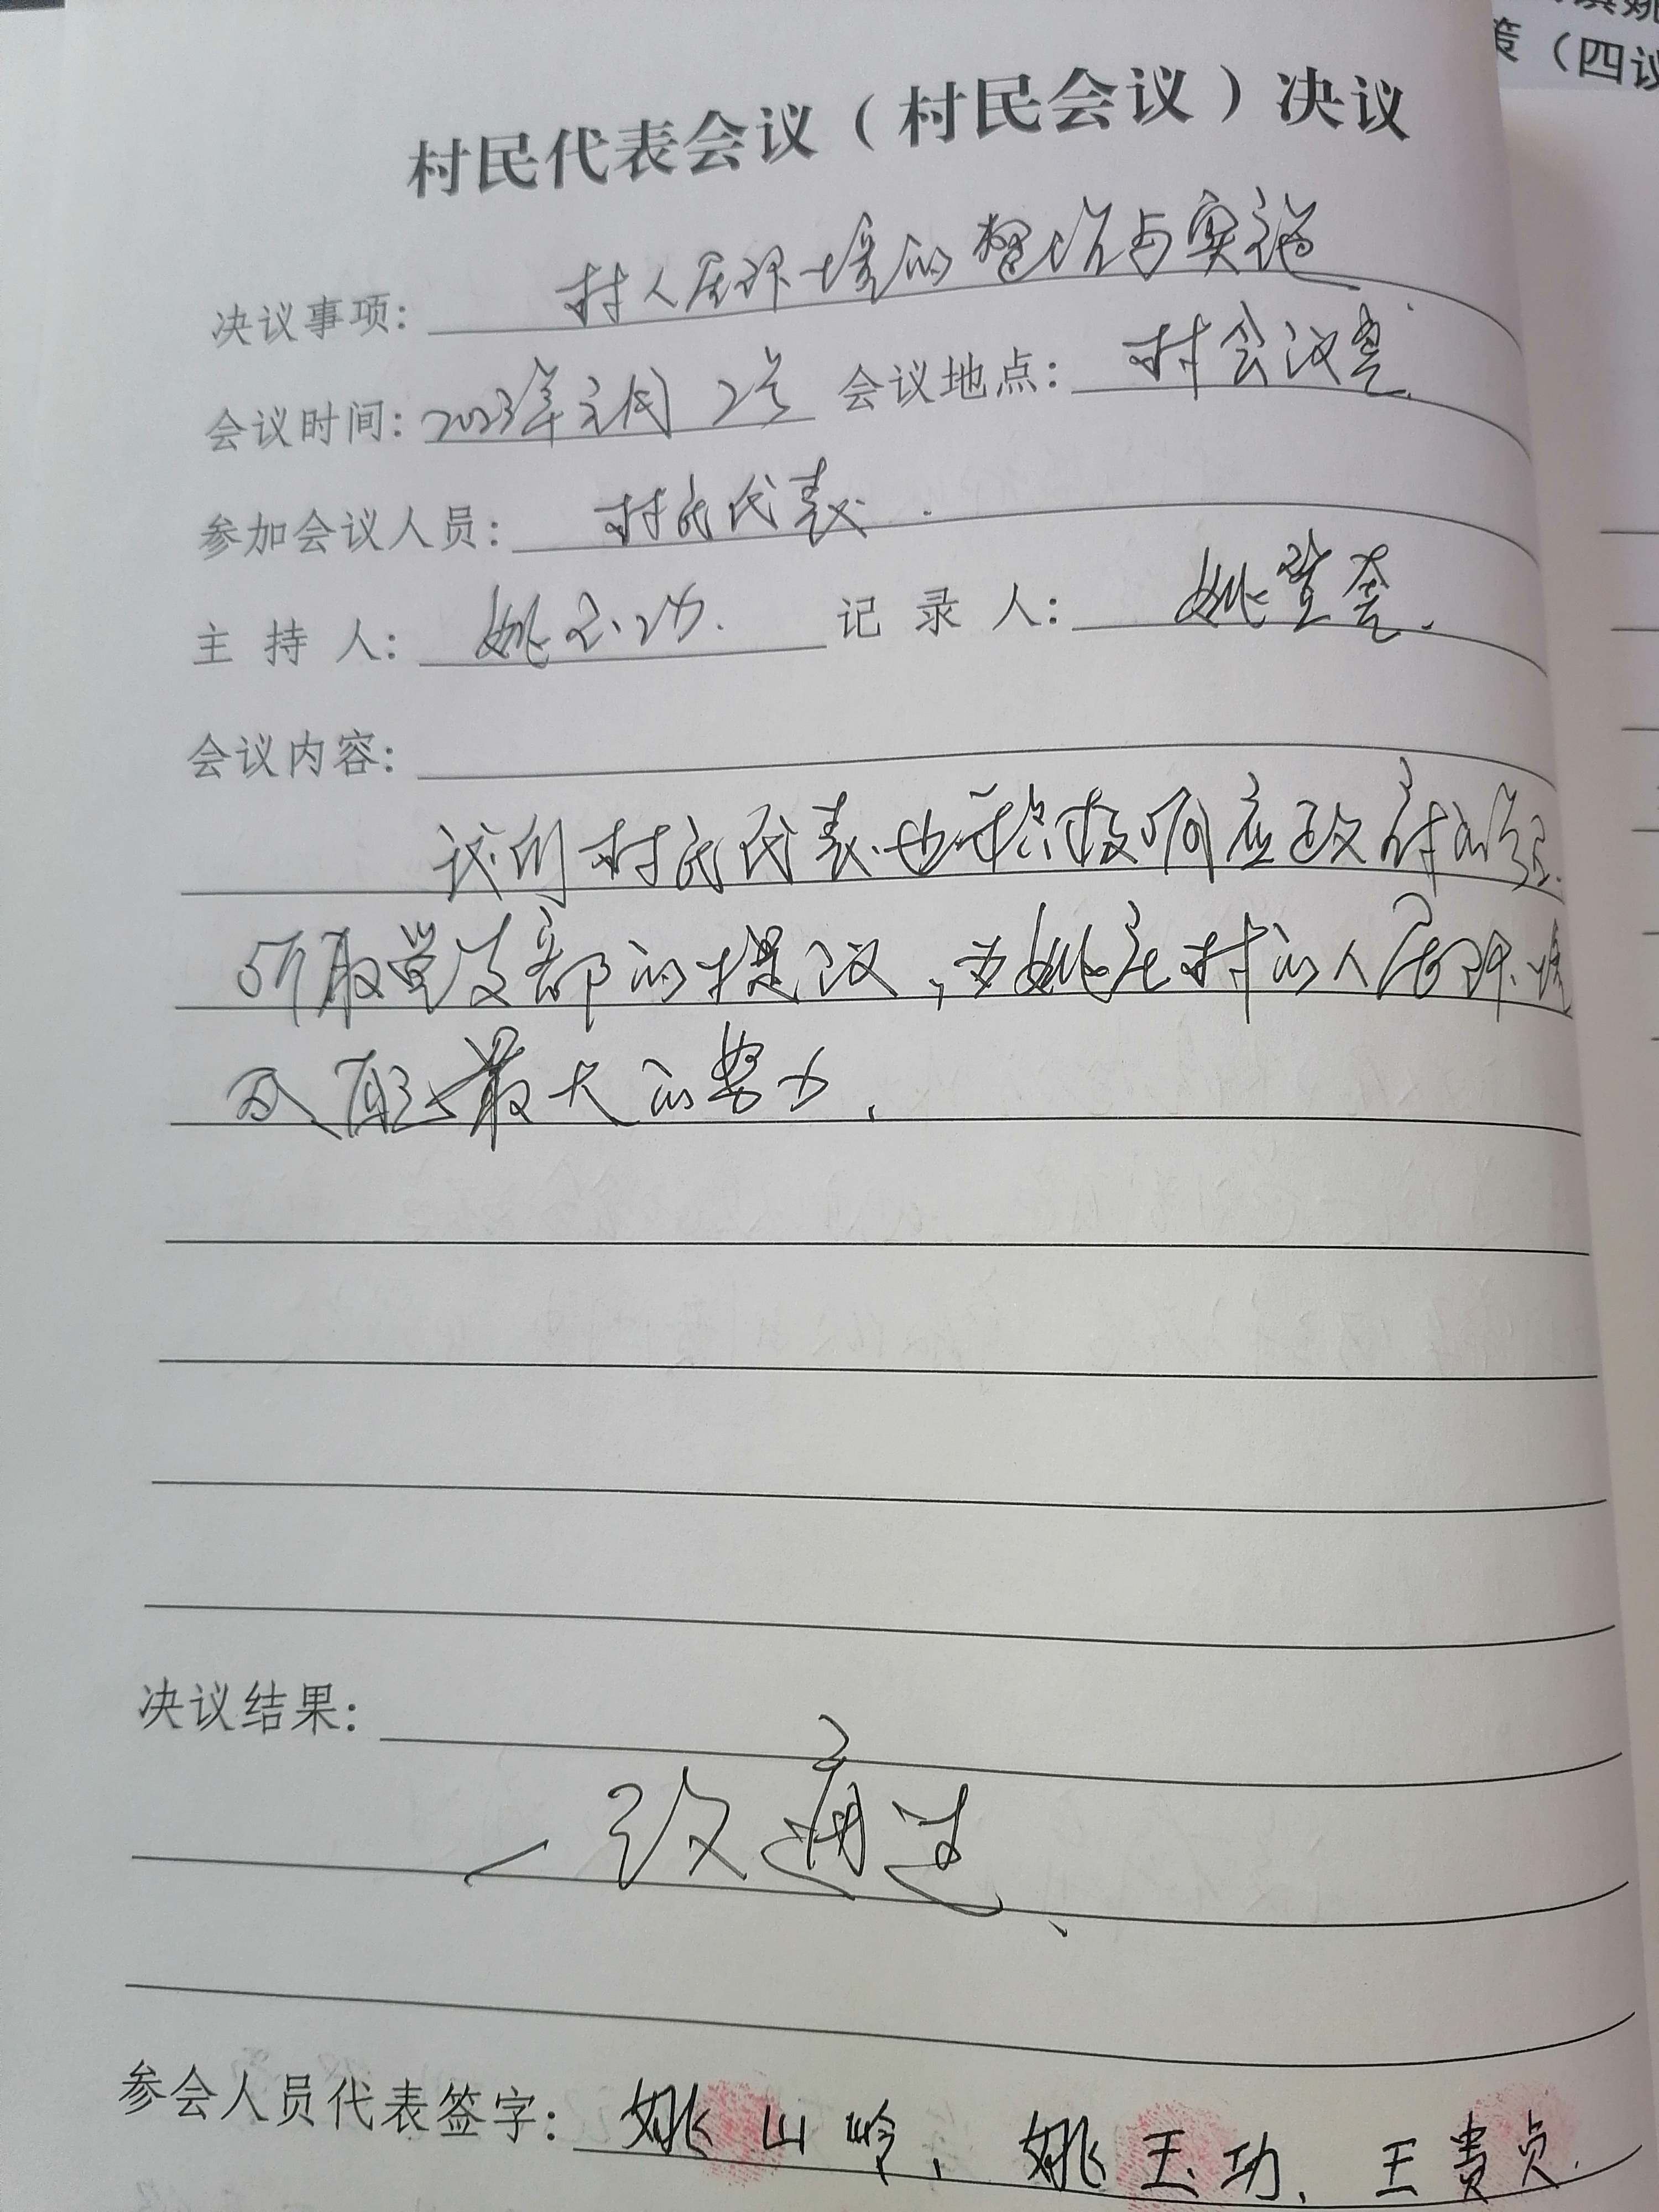 策（四议
村民代表会议（村民会议）决议
决议事项：村人居环境的整治与实施
会议时间：2023年元月2号 会议地点：村会议室
参加会议人员：村民代表
主持人：姚玉功 记录人：姚登奎
会议内容：
我们村民代表也积极响应政府的号召
听取党支部的提议，为姚庄村的人居环境
最大的努力，
决议结果：
一致通过
参会人员代表签字：姚山岭、姚玉功、王贵贞